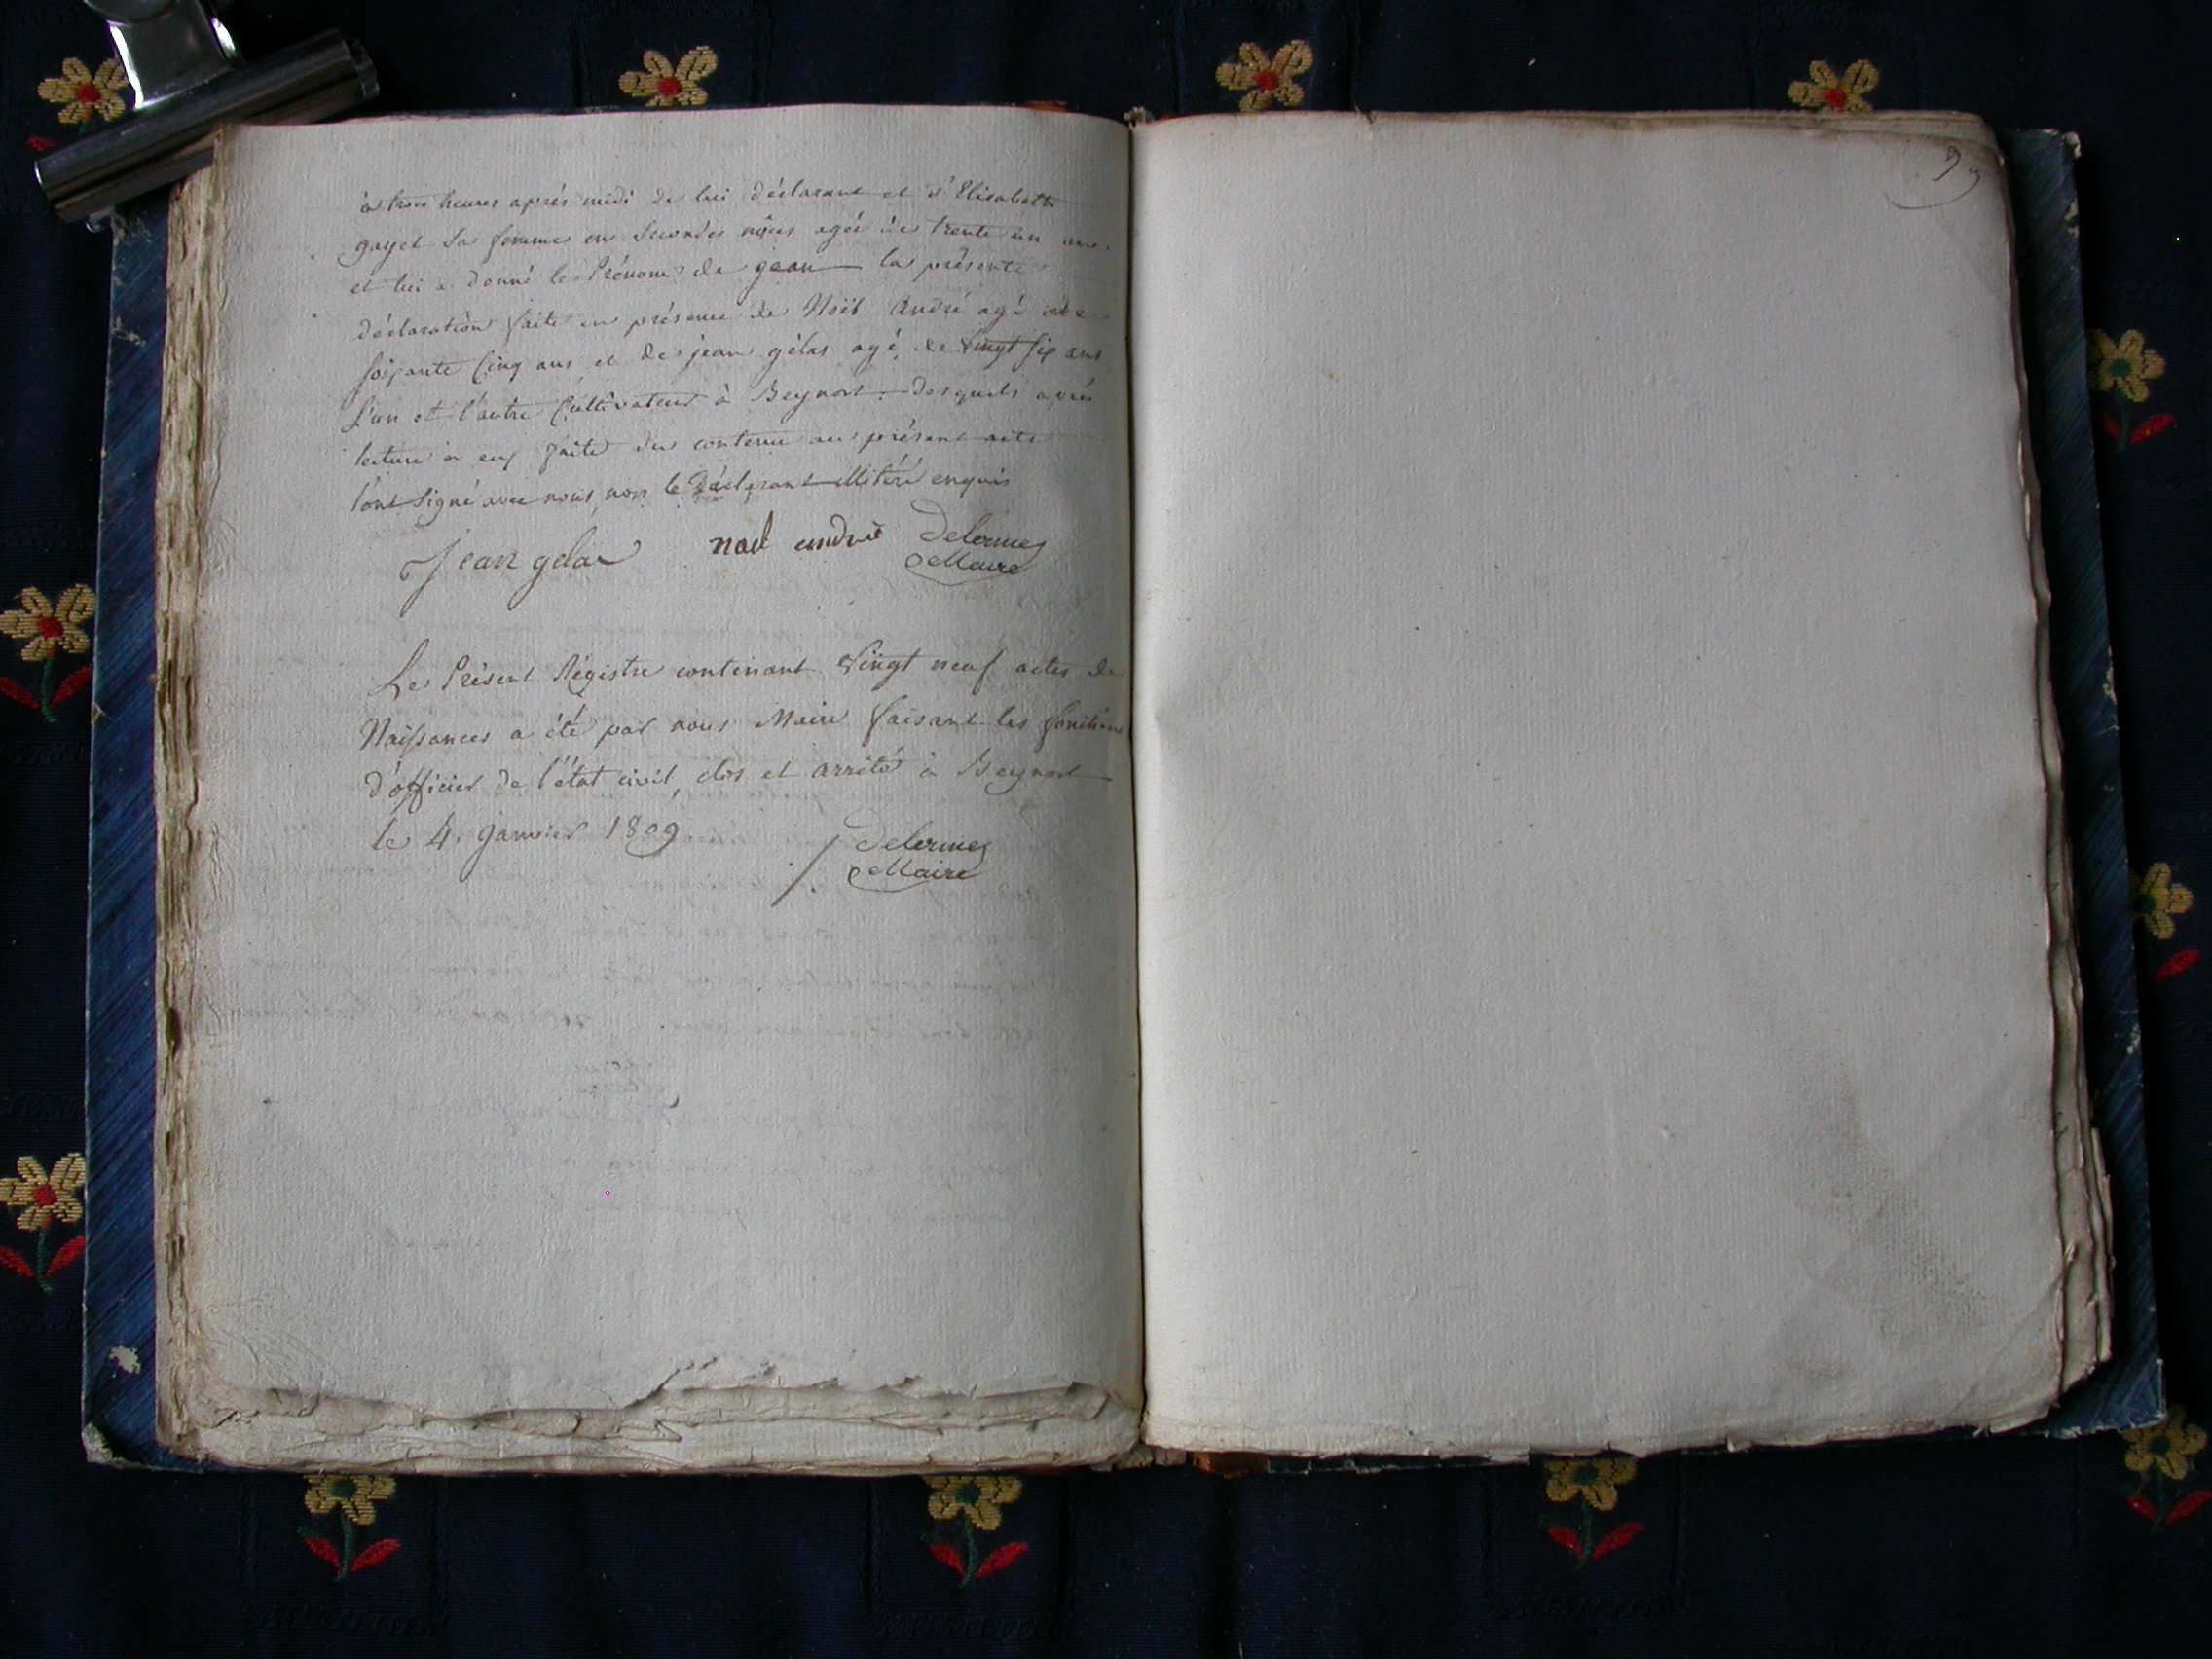 à trois heures après midi de lui déclarant et d'Elisabeth
gayet sa femme en secondes nôces agée de trente un ans.
et lui a donné le Prénom de jean la présente
déclaration faite en présence de Noël André agé de
soixante cinq ans et de jean gélas agé de vingt six ans
L'un et l'autre Cultivateur à Beynost. desquels après
lecture à eux faite du contenu au présent acte
l'ont signé avec nous, non le Déclarant illitéré enquis
Jean gelas noel andrié Delorme
Maire
Le Présent Régistre contenant vingt neuf actes de
Naissances a été par nous Maire faisant les fonctions
d'officier de l'état civil, clos et arrêté à Beynost
le 4. Janvier 1809
Delorme
Maire